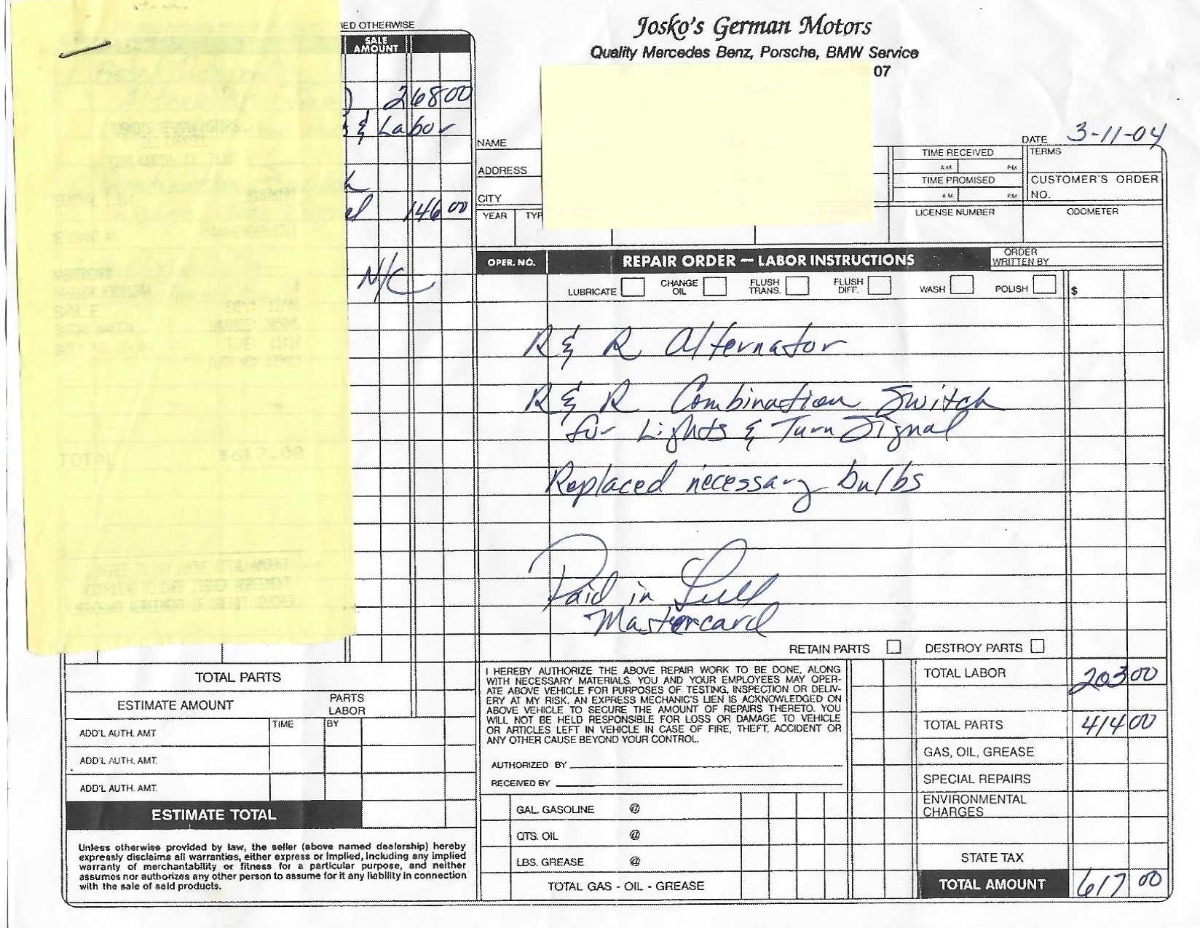 Josko's German Motors
Quality Mercedes Benz, Porsche, BMW Service
07
ED OTHERWISE
SALE AMOUNT
26800
& Labor
146 00
N/C
TOTAL $617.00
NAME
ADDRESS
CITY
YEAR TYP
DATE 3-11-04
TIME RECEIVED
A.M. P.M.
TIME PROMISED
A.M. P.M.
TERMS
CUSTOMER'S ORDER NO.
LICENSE NUMBER
ODOMETER
OPER. NO. REPAIR ORDER — LABOR INSTRUCTIONS
ORDER WRITTEN BY
LUBRICATE CHANGE OIL FLUSH TRANS. FLUSH DIFF. WASH POLISH $
R & R Alternator
R & R Combination Switch
for Lights & Turn Signal
Replaced necessary bulbs
Paid in Full
Mastercard
RETAIN PARTS DESTROY PARTS
TOTAL PARTS
ESTIMATE AMOUNT PARTS LABOR
ADD'L AUTH. AMT TIME BY
ADD'L AUTH. AMT.
ADD'L AUTH. AMT.
ESTIMATE TOTAL
Unless otherwise provided by law, the seller (above named dealership) hereby
expressly disclaims all warranties, either express or implied, including any implied
warranty of merchantability or fitness for a particular purpose, and neither
assumes nor authorizes any other person to assume for it any liability in connection
with the sale of said products.
I HEREBY AUTHORIZE THE ABOVE REPAIR WORK TO BE DONE, ALONG
WITH NECESSARY MATERIALS. YOU AND YOUR EMPLOYEES MAY OPER-
ATE ABOVE VEHICLE FOR PURPOSES OF TESTING, INSPECTION OR DELIV-
ERY AT MY RISK. AN EXPRESS MECHANIC'S LIEN IS ACKNOWLEDGED ON
ABOVE VEHICLE TO SECURE THE AMOUNT OF REPAIRS THERETO. YOU
WILL NOT BE HELD RESPONSIBLE FOR LOSS OR DAMAGE TO VEHICLE
OR ARTICLES LEFT IN VEHICLE IN CASE OF FIRE, THEFT, ACCIDENT OR
ANY OTHER CAUSE BEYOND YOUR CONTROL.
AUTHORIZED BY
RECEIVED BY
GAL. GASOLINE @
QTS. OIL @
LBS. GREASE @
TOTAL GAS - OIL - GREASE
TOTAL LABOR 203 00
TOTAL PARTS 414 00
GAS, OIL, GREASE
SPECIAL REPAIRS
ENVIRONMENTAL CHARGES
STATE TAX
TOTAL AMOUNT 617 00